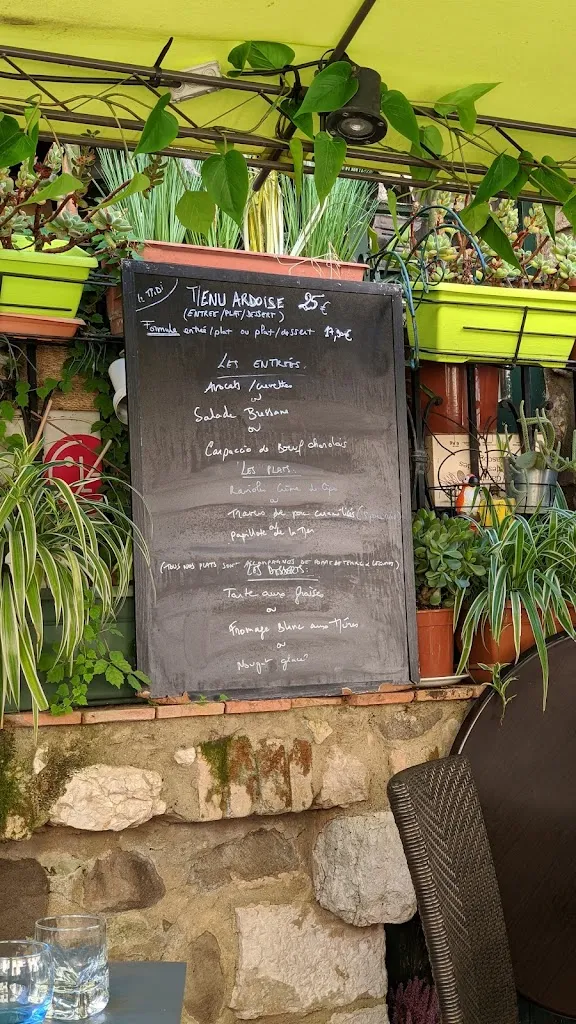 le Midi
MENU ARDOISE 25€
(ENTREE/PLAT/DESSERT)
Formule entrée/plat ou plat/dessert
LES ENTRÉES.
Avocats /crevettes
ou
Salade Bressane
ou
Carpaccio de Bœuf charolais
LES PLATS.
Raviolis Crème de
ou
Travers de porc
ou
papillote de la Mer
(TOUS NOS PLATS SONT ACCOMPAGNES DE POMME DE TERRE & LEGUMES)
LES DESSERTS:
Tarte aux fraises
ou
Fromage Blanc aux Mûres
ou
Nougat glacé